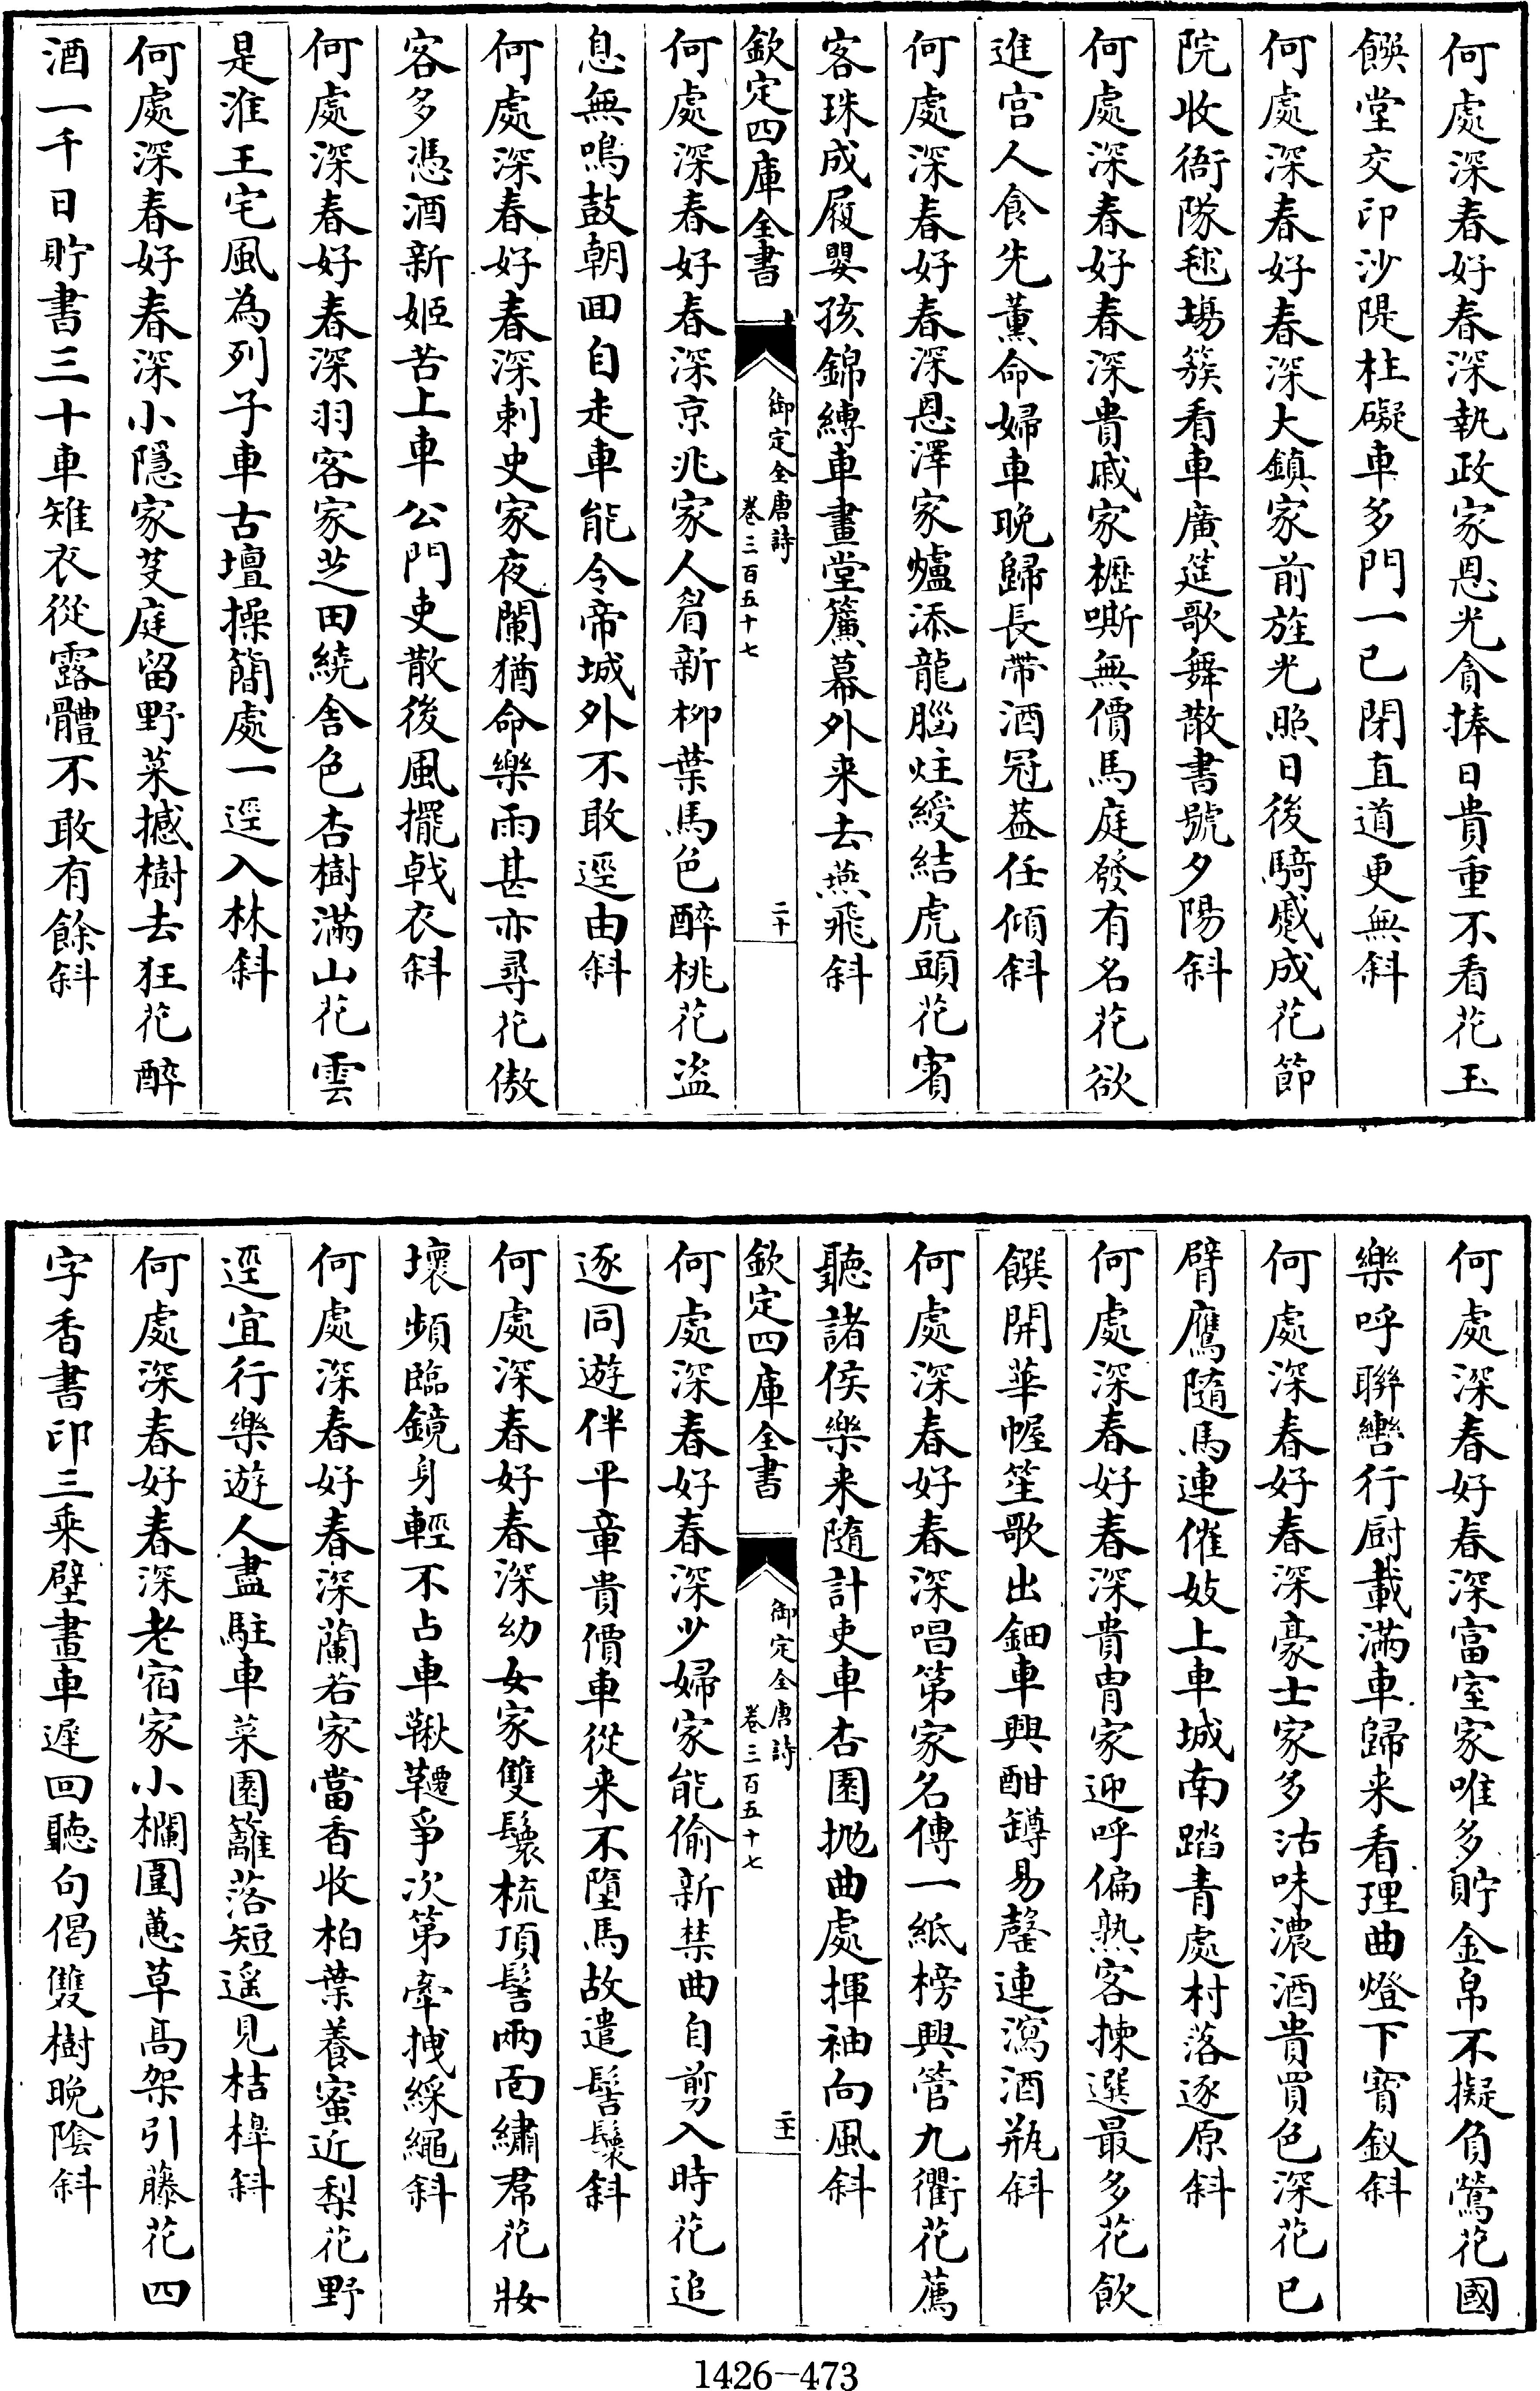 何處深春好春深執政家恩光貪捧日貴重不看花玉
饌堂交印沙隄柱礙車多門一已閉直道更無斜
何處深春好春深大鎮家前旌光照日後騎蹙成花節
院收衙隊毬場簇看車廣筵歌舞散書號夕陽斜
何處深春好春深貴戚家櫪嘶無價馬庭發有名花欲
進宮人食先薰命婦車晚歸長帶酒冠葢任傾斜
何處深春好春深恩澤家爐添龍腦炷綬結虎頭花賓
客珠成履嬰孩錦縛車畫堂簾幕外来去燕飛斜
欽定四庫全書
御定全唐詩
卷三百五十七
二十
何處深春好春深京兆家人眉新柳葉馬色醉桃花盜
息無鳴鼓朝囬自走車能令帝城外不敢逕由斜
何處深春好春深刺史家夜闌猶命樂雨甚亦尋花傲
客多憑酒新姬苦上車公門吏散後風擺戟衣斜
何處深春好春深羽客家芝田繞舍色杏樹滿山花雲
是淮王宅風為列子車古壇操簡處一逕入林斜
何處深春好春深小隱家芟庭留野菜撼樹去狂花醉
酒一千日貯書三十車雉衣從露體不敢有餘斜
何處深春好春深富室家唯多貯金帛不擬負鶯花國
樂呼聯轡行厨載滿車歸来看理曲燈下寳釵斜
何處深春好春深豪士家多沽味濃酒貴買色深花已
臂鷹隨馬連催妓上車城南踏青處村落逐原斜
何處深春好春深貴胄家迎呼偏熟客揀選最多花飲
饌開華幄笙歌出鈿車興酣罇易罄連瀉酒瓶斜
何處深春好春深唱第家名傳一紙榜興管九衢花薦
聽諸侯樂来隨計吏車杏園拋曲處揮袖向風斜
欽定四庫全書
御定全唐詩
卷三百五十七
二十一
何處深春好春深少婦家能偷新禁曲自剪入時花追
逐同遊伴平章貴價車從来不墮馬故遣髻鬟斜
何處深春好春深幼女家雙鬟梳頂髻兩面繡帬花妝
壞頻臨鏡身輕不占車鞦韆爭次第牽拽綵繩斜
何處深春好春深蘭若家當香收柏葉養蜜近梨花野
逕宜行樂遊人盡駐車菜園籬落短遥見桔槔斜
何處深春好春深老宿家小欄圍蕙草高架引藤花四
字香書印三乘壁畫車遲回聽句偈雙樹晚陰斜
1426-473